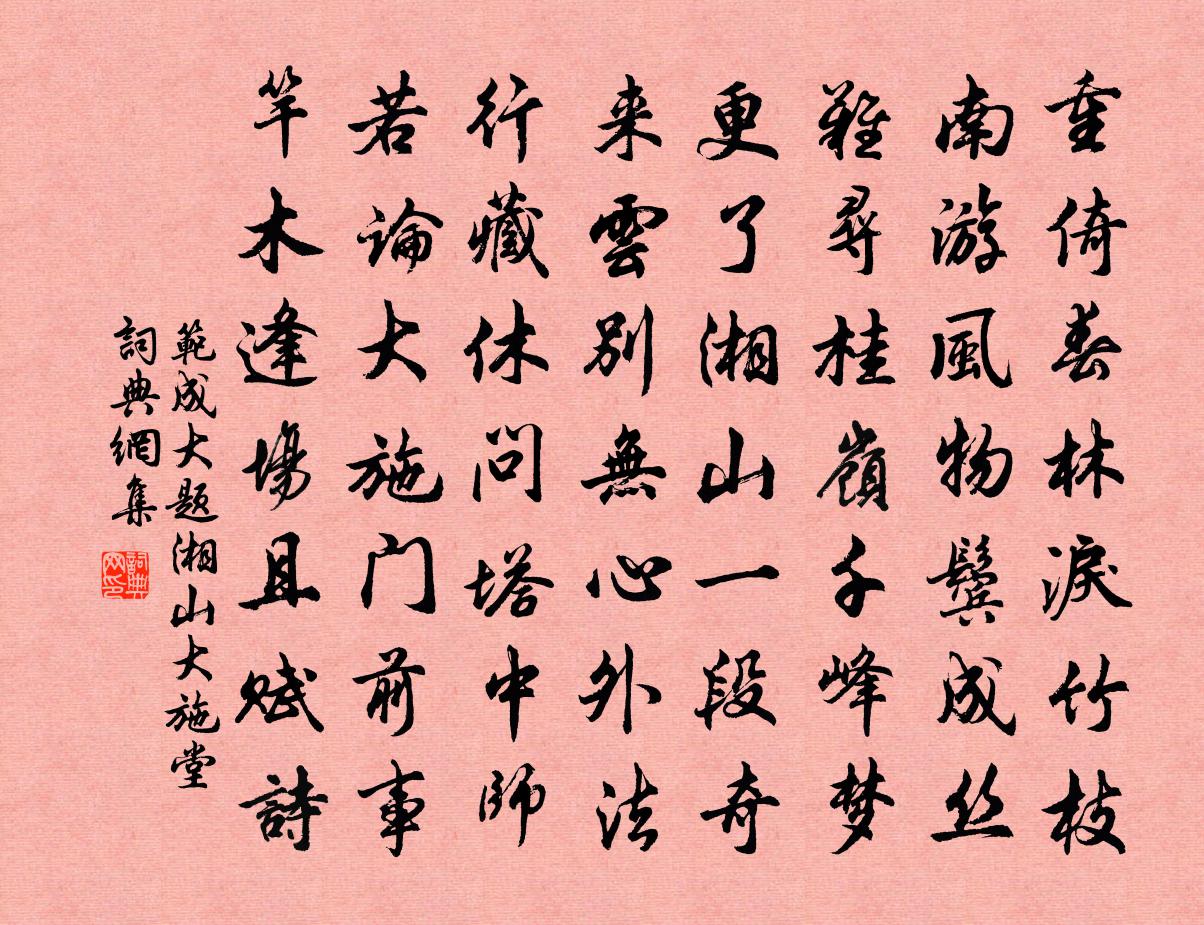 重倚春林淚竹枝
南游風物鬢成丝
難尋桂嶺千峰梦
更了湘山一段奇
来雲別無心外法
行藏休問塔中師
若論大施门前事
竿木逢場且赋詩
範成大题湘山大施堂
詞典網集
詞典网印